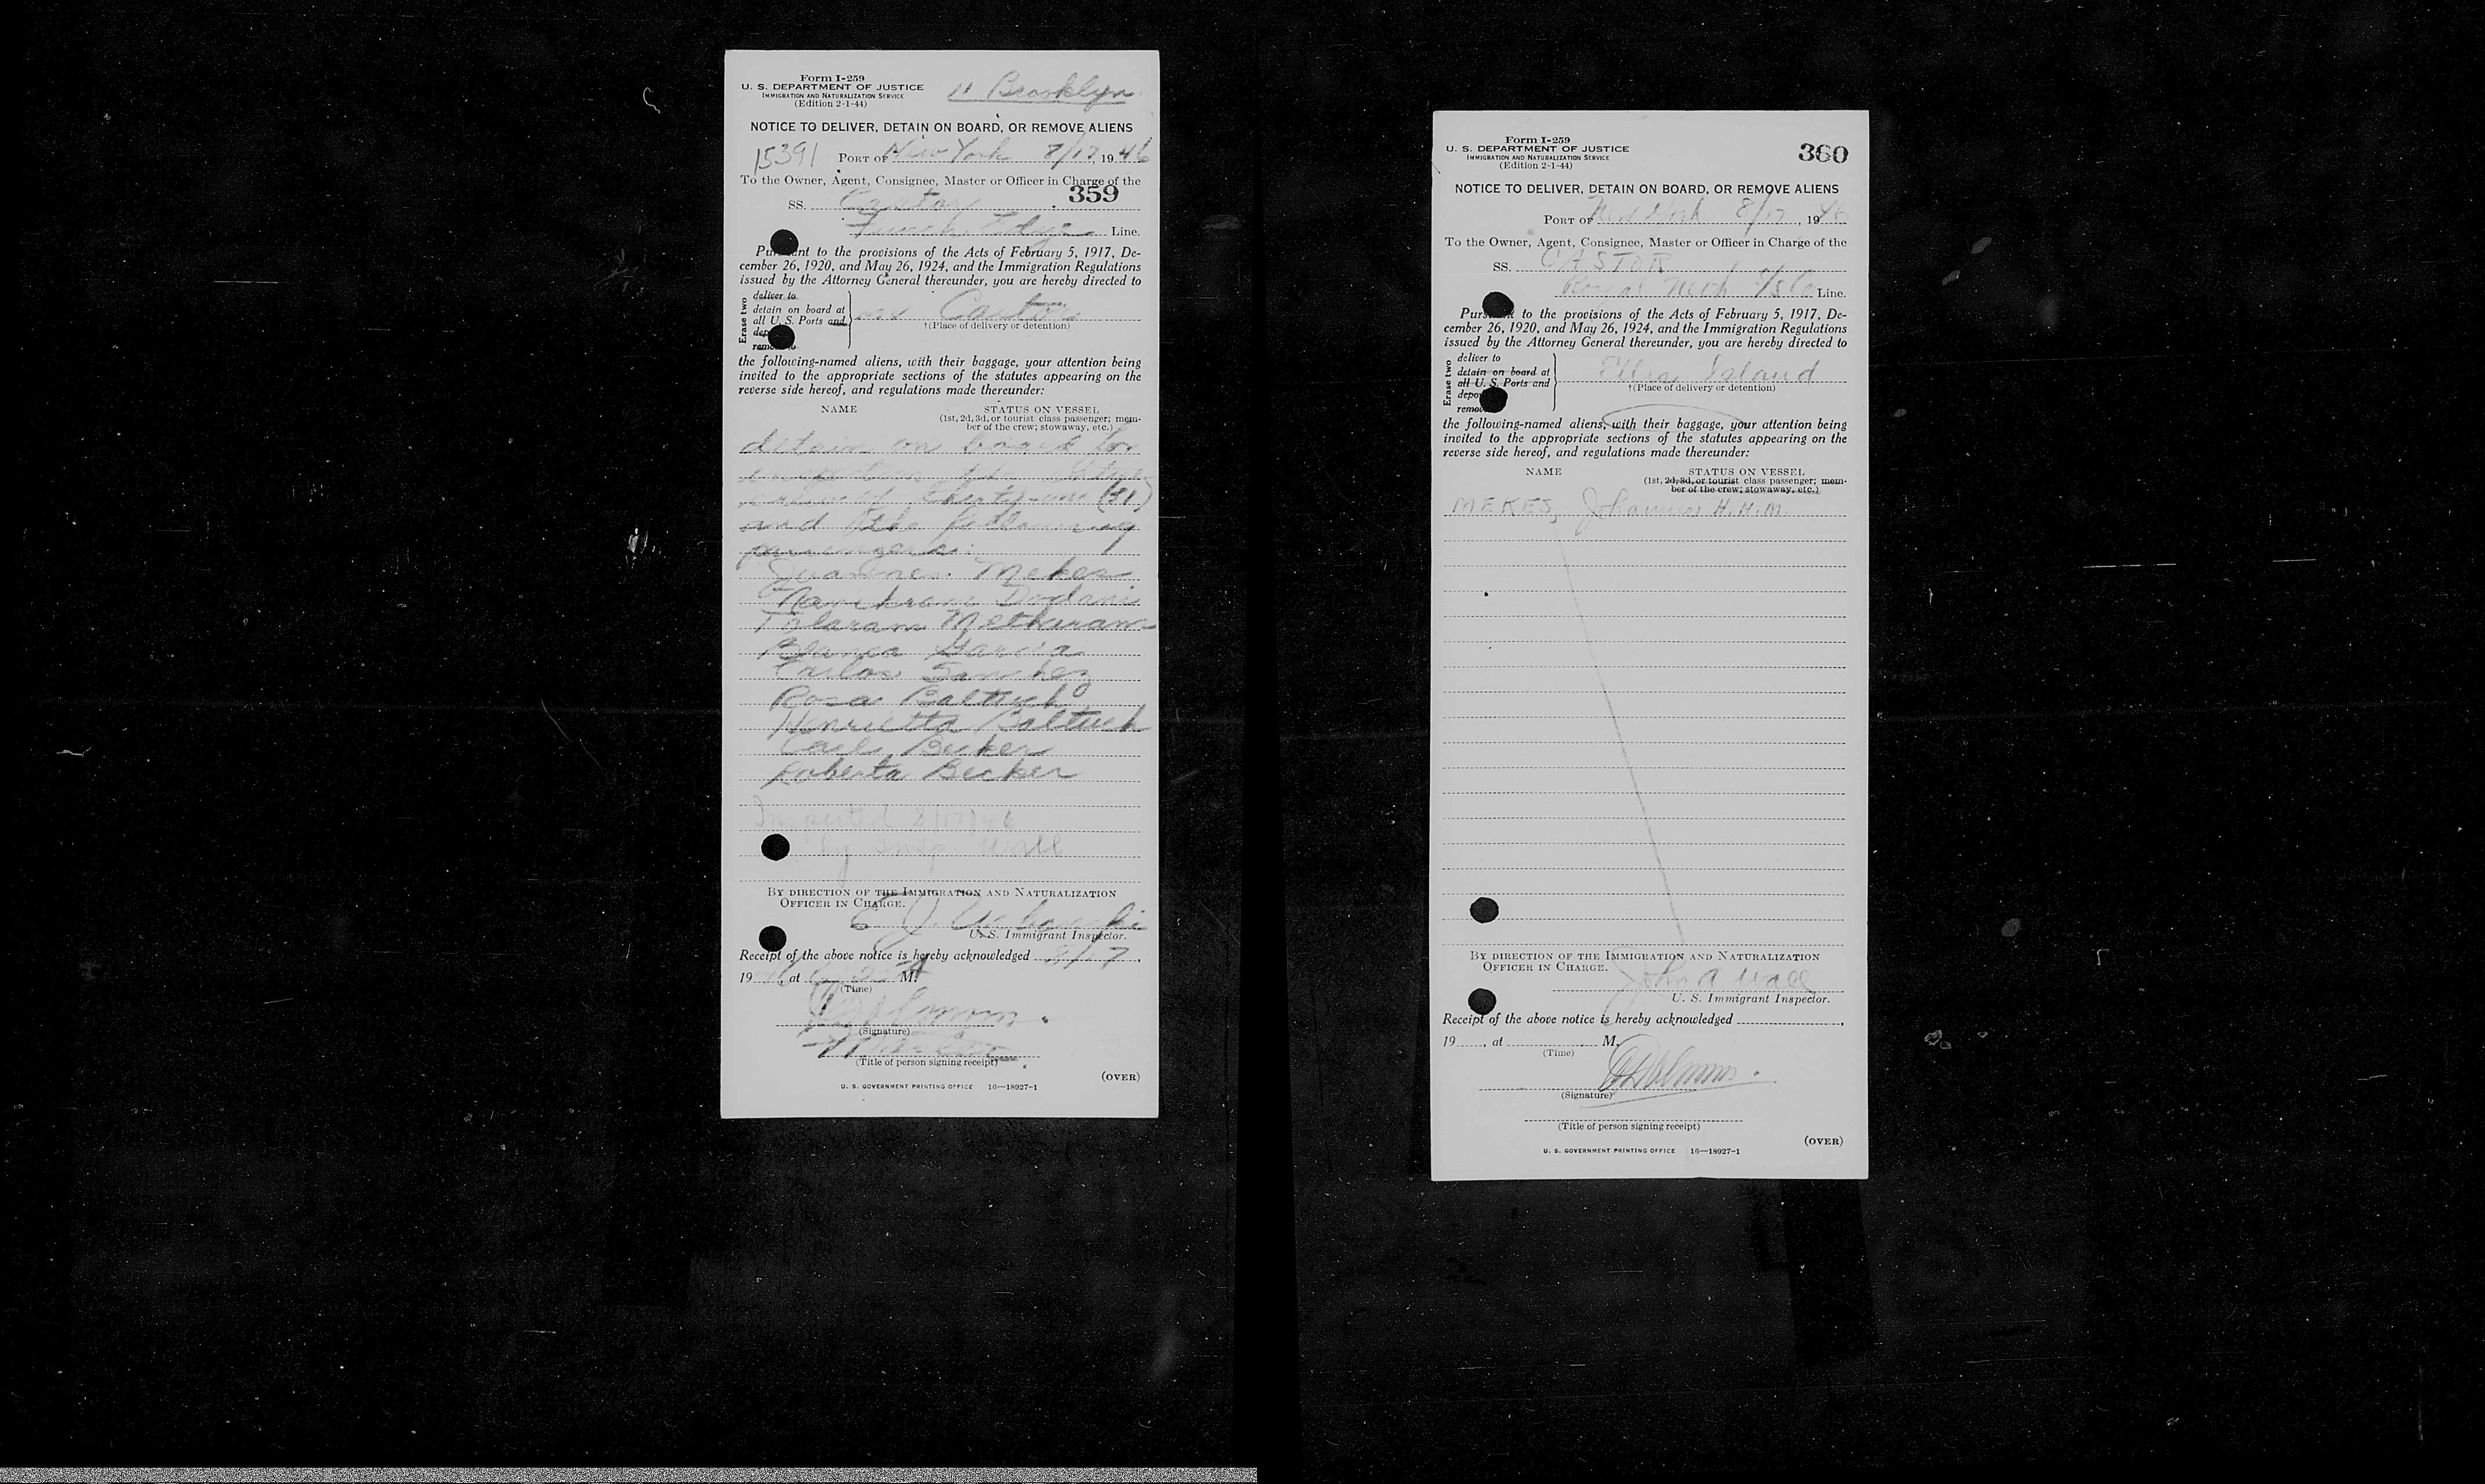 Form I-259
U. S. DEPARTMENT OF JUSTICE
IMMIGRATION AND NATURALIZATION SERVICE
(Edition 2-1-44)
11 Brooklyn
NOTICE TO DELIVER, DETAIN ON BOARD, OR REMOVE ALIENS
15391 PORT OF New York 8/17, 1946
To the Owner, Agent, Consignee, Master or Officer in Charge of the
359
SS. Castor
Funch, Edye Line.
Pursuant to the provisions of the Acts of February 5, 1917, De-
cember 26, 1920, and May 26, 1924, and the Immigration Regulations
issued by the Attorney General thereunder, you are hereby directed to
Erase two
deliver to
detain on board at
all U. S. Ports and
remove to
Castor
†(Place of delivery or detention)
the following-named aliens, with their baggage, your attention being
invited to the appropriate sections of the statutes appearing on the
reverse side hereof, and regulations made thereunder:
NAME STATUS ON VESSEL
(1st, 2d, 3d, or tourist class passenger; mem-
ber of the crew; stowaway, etc.)
detain on board for
inspection the
thirty-one (31)
and the following
passengers:
Mekes
Dodani
Methuram
Blanca Garcia
Carlos Sanchez
Rosa Baltuch
Henrietta Baltuch
Carl Becker
Roberta Becker
Inspected 8/17/46
by Insp. Wall
BY DIRECTION OF THE IMMIGRATION AND NATURALIZATION
OFFICER IN CHARGE.
E. J.
U. S. Immigrant Inspector.
Receipt of the above notice is hereby acknowledged 8/17,
1946, at M.
(Time)
(Signature)
(Title of person signing receipt)
U. S. GOVERNMENT PRINTING OFFICE 16—18927-1
(OVER)
Form I-259
U. S. DEPARTMENT OF JUSTICE
IMMIGRATION AND NATURALIZATION SERVICE
(Edition 2-1-44)
360
NOTICE TO DELIVER, DETAIN ON BOARD, OR REMOVE ALIENS
PORT OF New York 8/17, 1946
To the Owner, Agent, Consignee, Master or Officer in Charge of the
SS. CASTOR
Royal Neth S/S Co Line.
Pursuant to the provisions of the Acts of February 5, 1917, De-
cember 26, 1920, and May 26, 1924, and the Immigration Regulations
issued by the Attorney General thereunder, you are hereby directed to
Erase two
deliver to
detain on board at
all U. S. Ports and
remove
Ellis Island
†(Place of delivery or detention)
the following-named aliens, with their baggage, your attention being
invited to the appropriate sections of the statutes appearing on the
reverse side hereof, and regulations made thereunder:
NAME STATUS ON VESSEL
(1st, 2d, 3d, or tourist class passenger; mem-
ber of the crew; stowaway, etc.)
MEKES, Johannes H. H. M.
BY DIRECTION OF THE IMMIGRATION AND NATURALIZATION
OFFICER IN CHARGE.
John A Wall
U. S. Immigrant Inspector.
Receipt of the above notice is hereby acknowledged
19 , at M.
(Time)
(Signature)
(Title of person signing receipt)
(OVER)
U. S. GOVERNMENT PRINTING OFFICE 16—18927-1